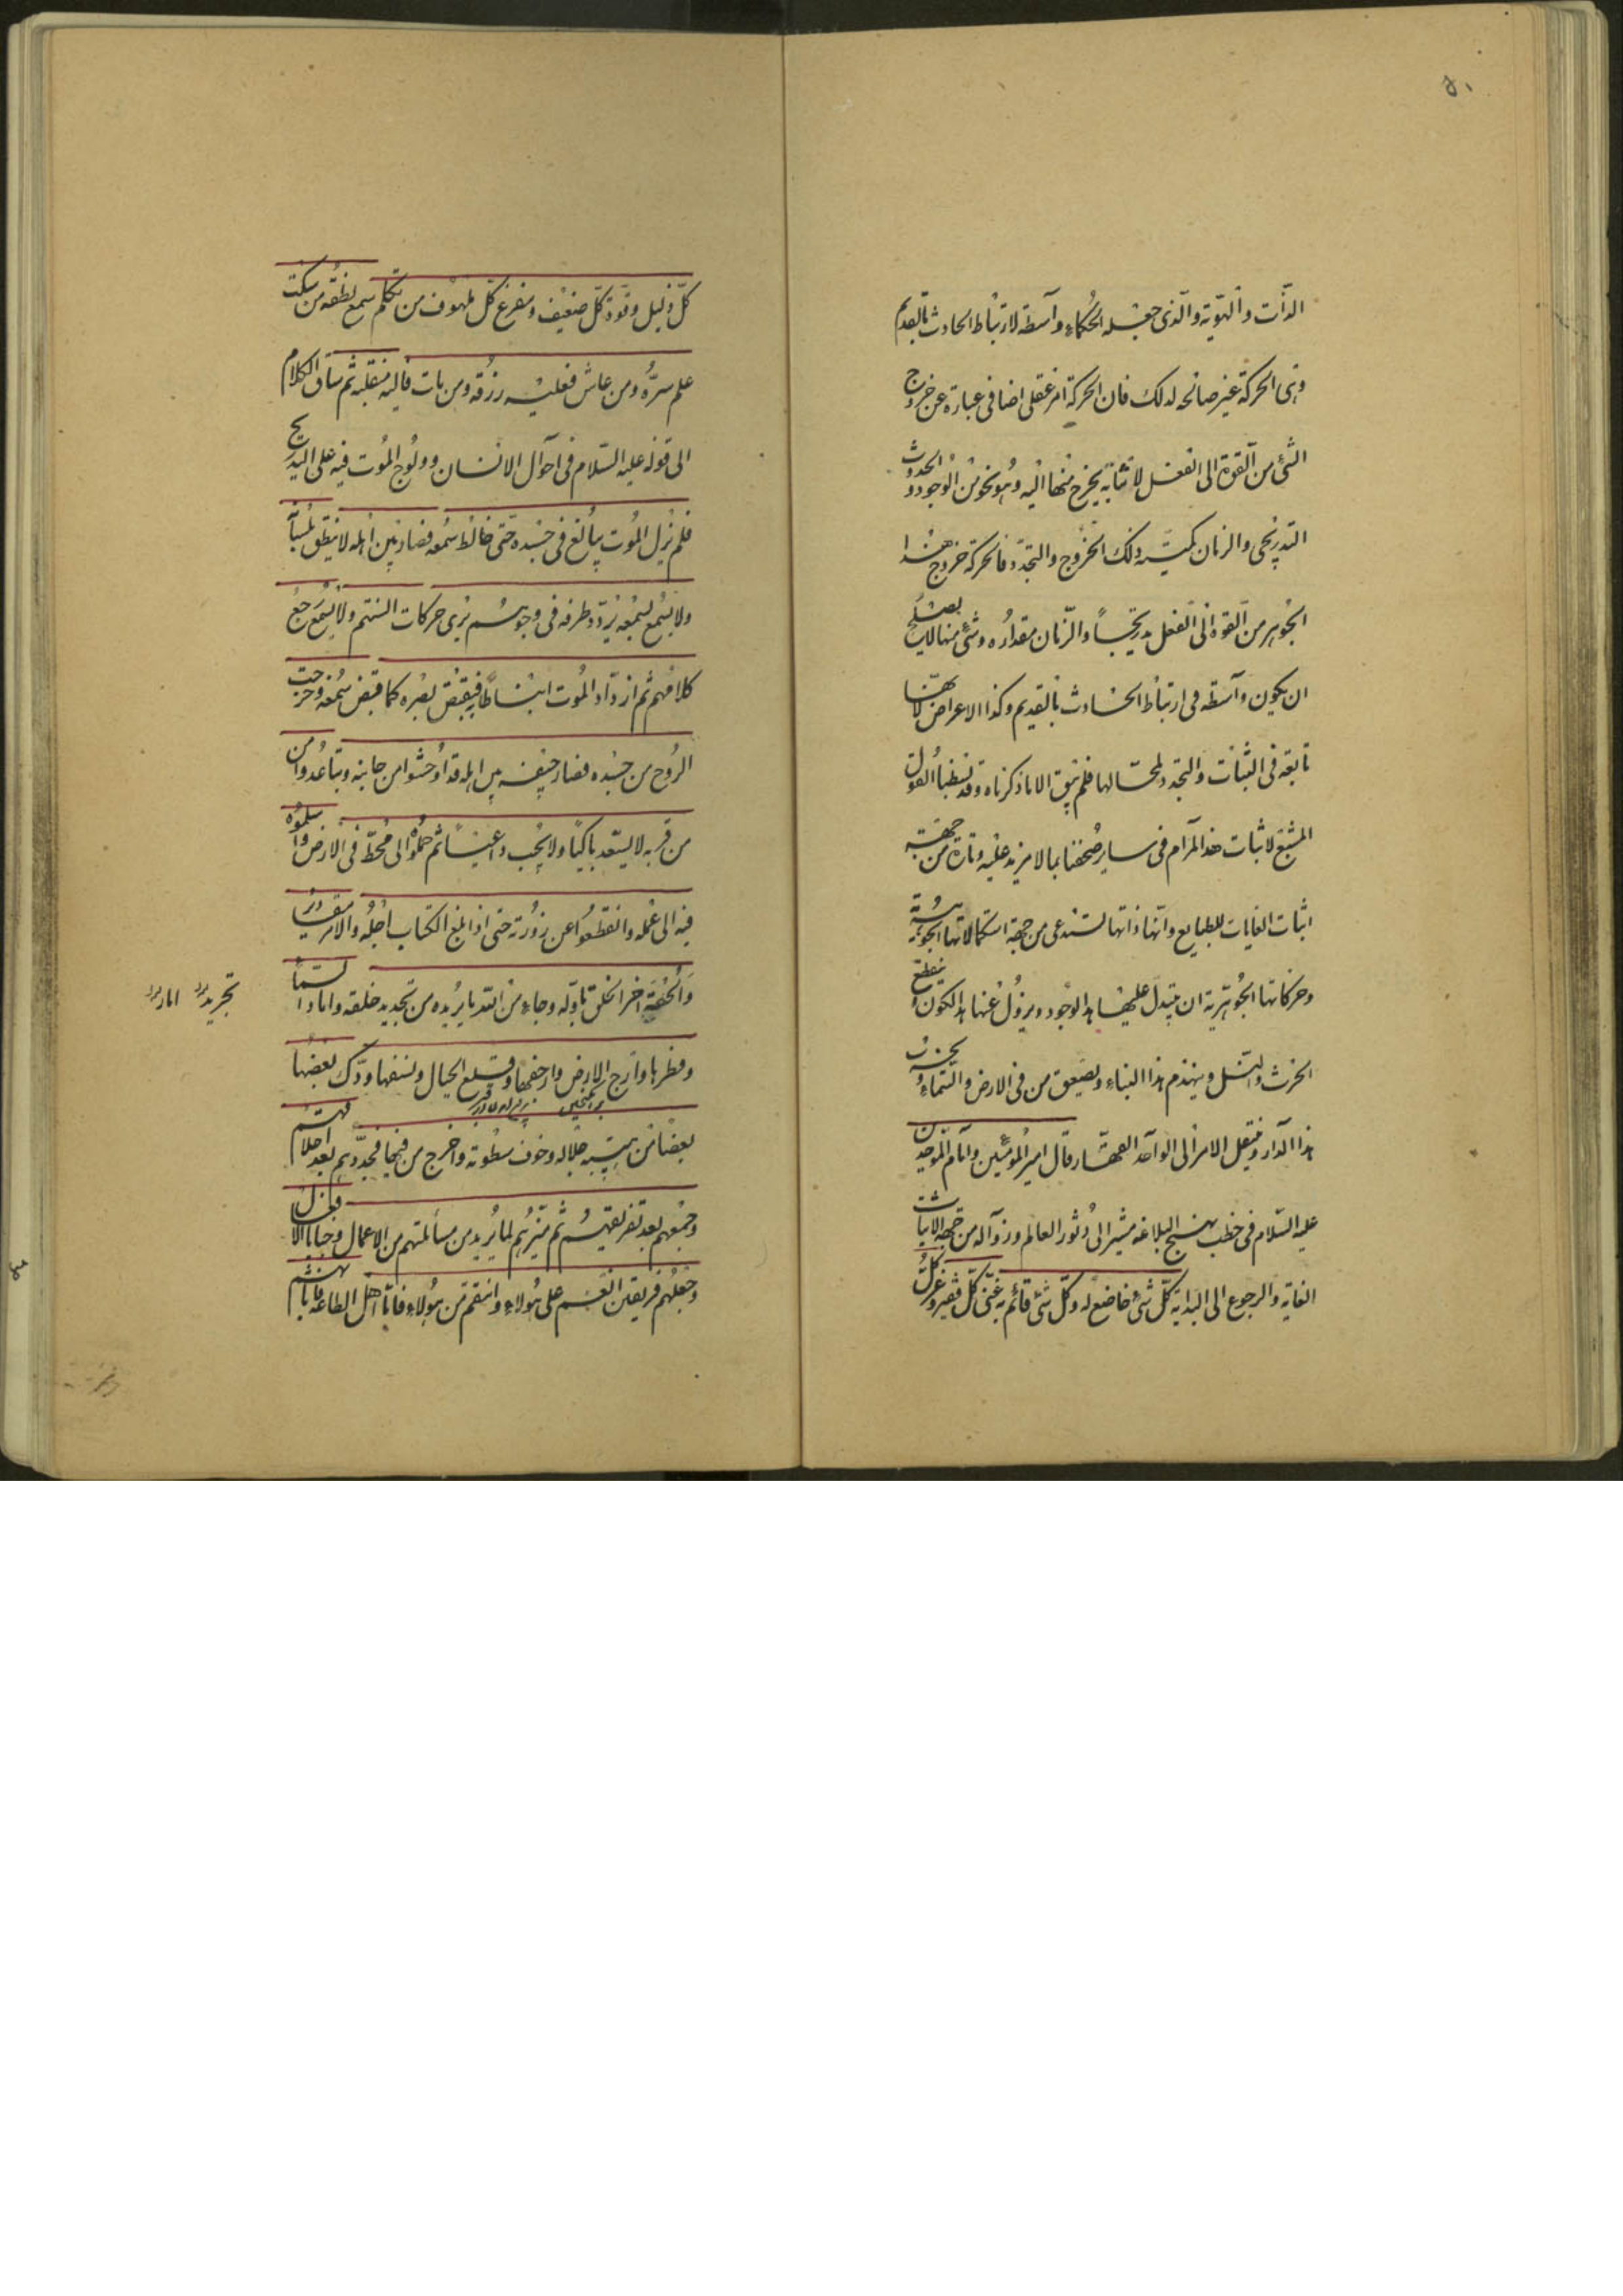 ٨١
الذات والهوية والذى جعله الحكماء واسطة لارتباط الحادث بالقديم
وهى الحركة غير صالحة لذلك فان الحركة امر عقلى اضافى عبارة عن خروج
الشئ من القوة الى الفعل لا ما به يخرج منها اليه وهو نحو من الوجود والحدوث
التدريجى والزمان كمية ذلك الخروج والتجدد فالحركة خروج هذا
الجوهر من القوة الى الفعل تدريجا والزمان مقداره وشئ منها لا يصلح
ان يكون واسطة فى ارتباط الحادث بالقديم وكذا الاعراض لانها
تابعة فى الثبات والتجدد لمحالها فلم يبق الا ما ذكرناه وقد بسطنا القول
المشبع لاثبات هذا المرام فى ساير صحفنا بما لا مزيد عليه وتارة من جهة
اثبات الغايات للطبايع وانها ذاتها تستدعى من جهة استكمالاتها الجوهرية
وحركاتها الجوهرية ان يتبدل عليها هذا الوجود ويزول عنها هذا الكون وينقطع
الحرث والنسل وينهدم هذا البناء ويصعق من فى الارض والسماء ويخرب
هذا الدار وينتقل الامر الى الواحد القهار قال امير المؤمنين وامام الموحدين
عليه السلام فى خطب نهج البلاغة مشيرا الى دثور العالم وزواله من جهة الاثبات
الغاية والرجوع الى البداية كل شئ خاضع له وكل شئ قائم به غنى كل فقير وعز
كل ذليل وقوة كل ضعيف ومفزع كل ملهوف من تكلم سمع نطقه من سكت
علم سره ومن عاش فعليه رزقه ومن مات فاليه منقلبه ثم ساق الكلام
الى قوله عليه السلام فى احوال الانسان وولوج الموت فيه على التدريج
فلم يزل الموت يبالغ فى جسده حتى خالط سمعه فصار بين اهله لا ينطق بلسانه
ولا يسمع بسمعه يردد طرفه فى وجوههم يرى حركات السنتهم ولا يسمع رجع
كلامهم ثم ازداد الموت انبساطا به فيقبض بصره كما قبض سمعه وخرجت
الروح من جسده فصار جيفة بين اهله قد اوحشوا من جانبه وتباعدوا من
من قربه لا يسعد باكيا ولا يجيب داعيا ثم حملوه الى محط فى الارض واسلموه
فيه الى عمله وانقطعوا عن زورته حتى اذا بلغ الكتاب اجله والامر مقاديره
والحق اخر الخلق باوله وجاء من امر الله ما يريده من تجديد خلقه واماد السماء
تجريد اماد
وفطرها وارج الارض وارجفها وقلع الجبال ونسفها ودك بعضها
بعضا من هيبة جلاله وخوف سطوته واخرج من فيها فجددهم بعد اخلاقهم
وجمعهم بعد تفريقهم ثم ميزهم لما يريد من مسألتهم من الاعمال وخبايا الافعال
وجعلهم فريقين انعم على هولاء وانتقم من هولاء فاما اهل الطاعة فاثابهم